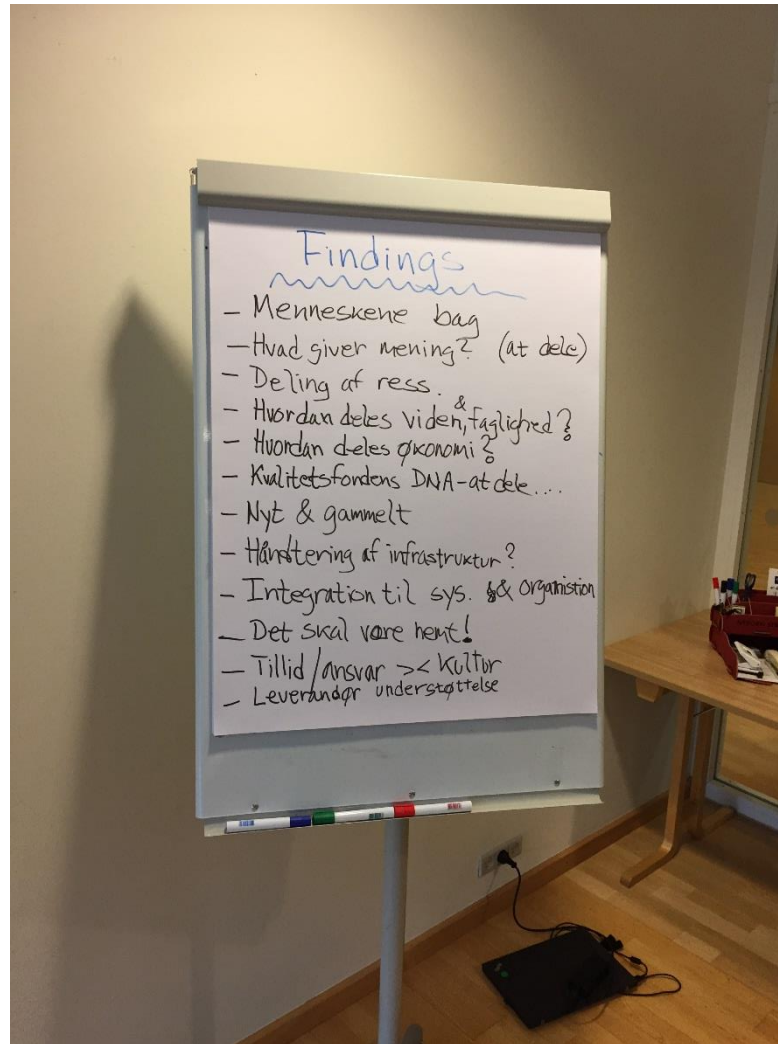 Findings
- Menneskene bag
- Hvad giver mening? (at dele)
- Deling af ress.
- Hvordan deles viden, & faglighed?
- Hvordan deles økonomi?
- Kvalitetsfondens DNA - at dele....
- Nyt & gammelt
- Håndtering af infrastruktur?
- Integration til sys. & organistion
- Det skal være nemt!
- Tillid/ansvar >< Kultur
- Leverandør understøttelse